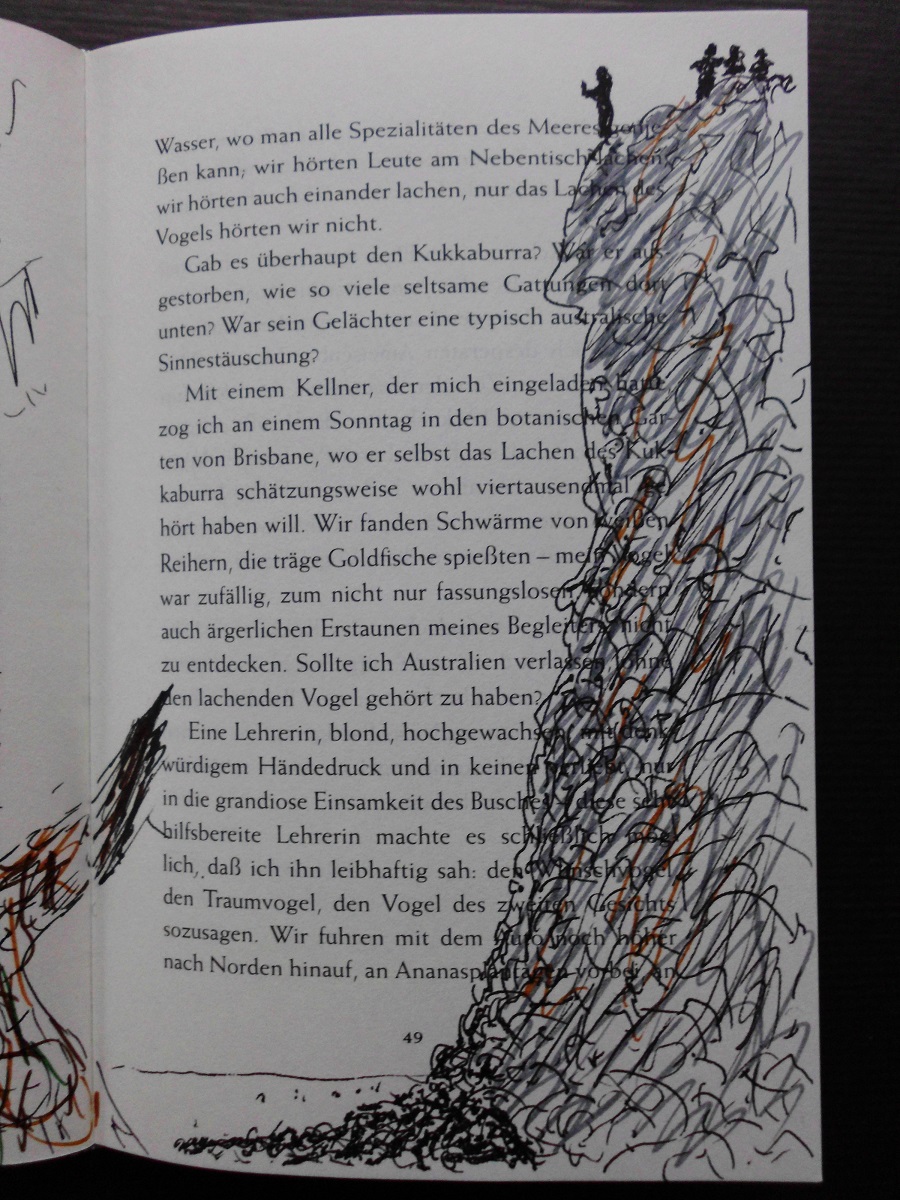 Wasser, wo man alle Spezialitäten des Meeres genie-
ßen kann; wir hörten Leute am Nebentisch lachen,
wir hörten auch einander lachen, nur das Lachen des
Vogels hörten wir nicht.
Gab es überhaupt den Kukkaburra? War er aus-
gestorben, wie so viele seltsame Gattungen dort
unten? War sein Gelächter eine typisch australische
Sinnestäuschung?
Mit einem Kellner, der mich eingeladen hatte,
zog ich an einem Sonntag in den botanischen Gar-
ten von Brisbane, wo er selbst das Lachen des Kuk-
kaburra schätzungsweise wohl viertausendmal ge-
hört haben will. Wir fanden Schwärme von weißen
Reihern, die träge Goldfische spießten – mein Vogel
war zufällig, zum nicht nur fassungslosen, sondern
auch ärgerlichen Erstaunen meines Begleiters, nicht
zu entdecken. Sollte ich Australien verlassen, ohne
den lachenden Vogel gehört zu haben?
Eine Lehrerin, blond, hochgewachsen, mit denk-
würdigem Händedruck und in keinen verliebt, nur
in die grandiose Einsamkeit des Busches – diese sehr
hilfsbereite Lehrerin machte es schließlich mög-
lich, daß ich ihn leibhaftig sah: den Wunschvogel,
den Traumvogel, den Vogel des zweiten Gesichts
sozusagen. Wir fuhren mit dem Auto noch höher
nach Norden hinauf, an Ananasplantagen vorbei, an
49